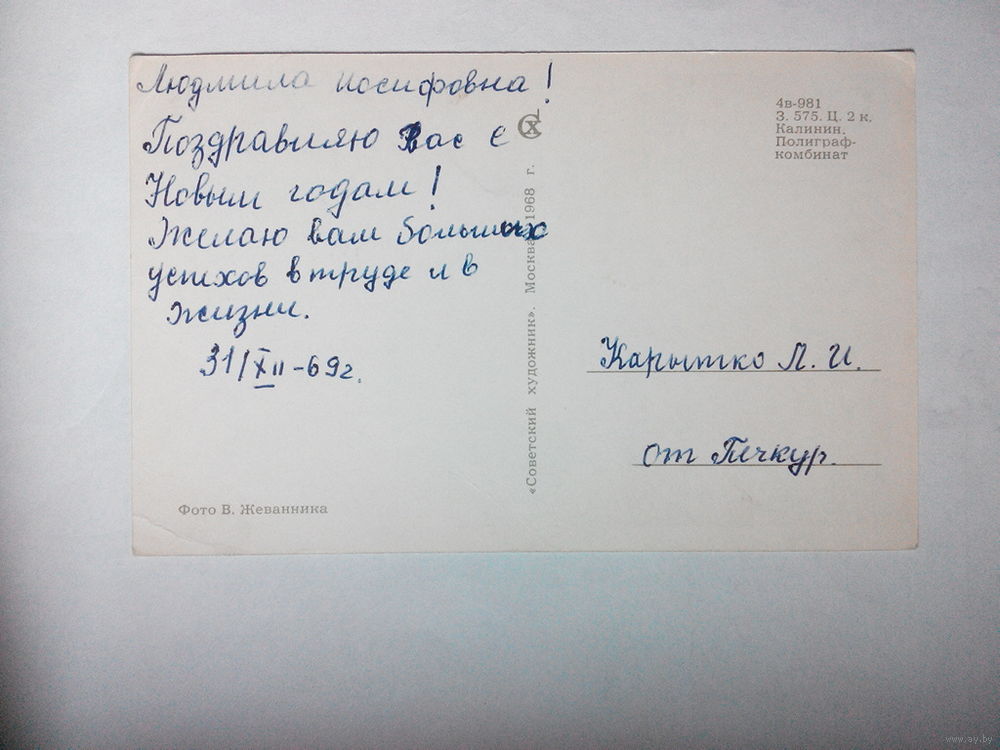 Людмила Иосифовна!
Поздравляю Вас с
Новым годам!
Желаю вам больших
успехов в труде и в
жизни.
31/XII-69г.
Фото В. Жеванника
«Советский художник». Москва. 1968 г.
4в-981
З. 575. Ц. 2 к.
Калинин.
Полиграф-
комбинат
Карытко Л. И.
от Печкур.
www.ay.by